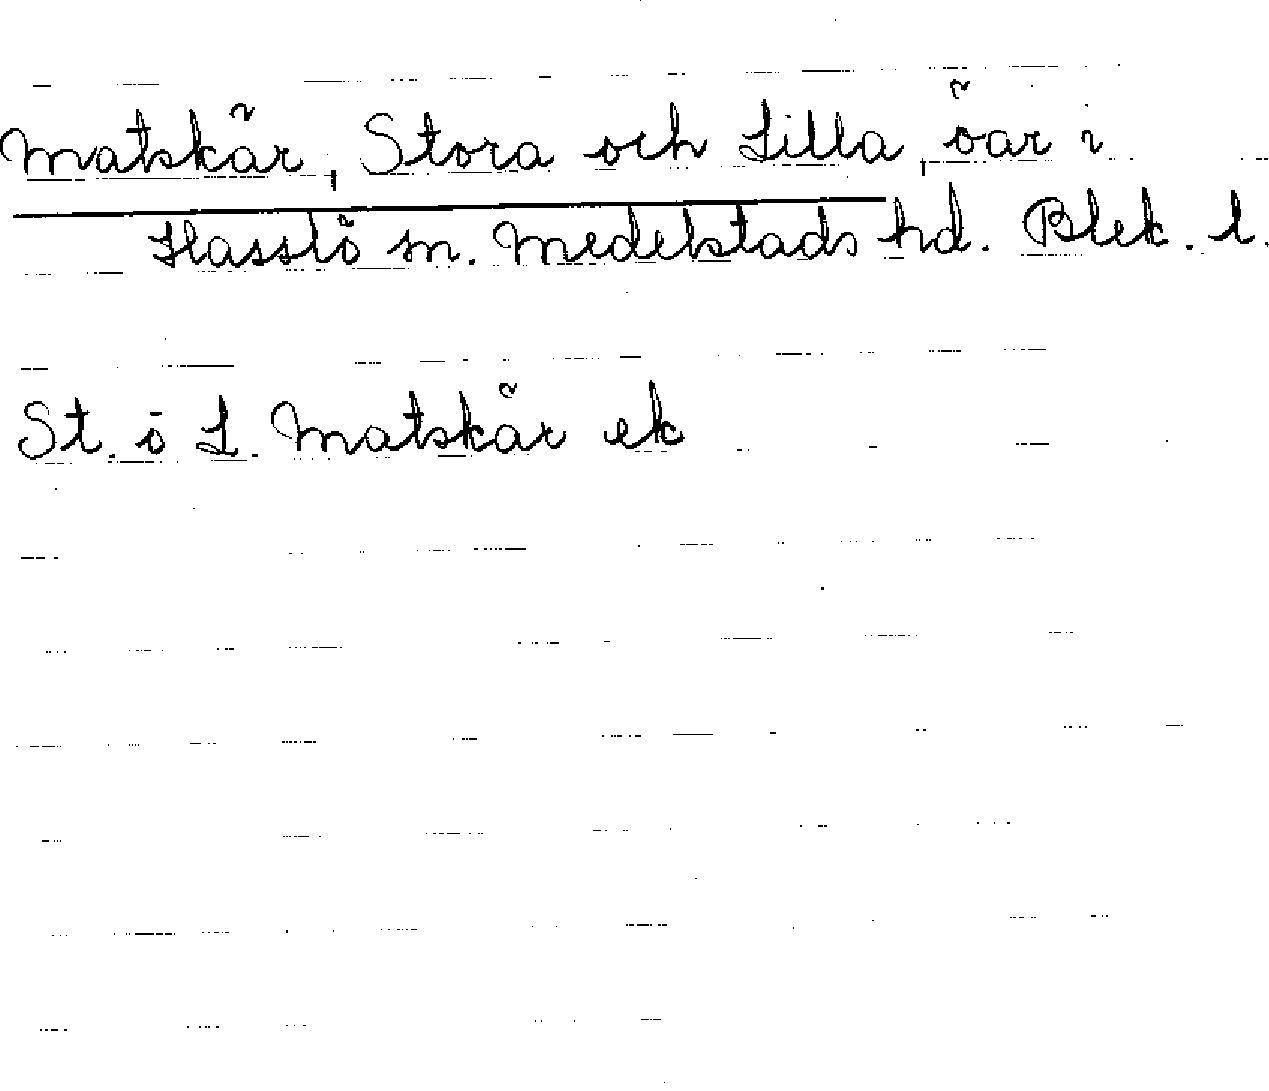 Matskär, Stora och Lilla, öar i
Hasslö sn. Medelstads hd. Blek. l.
St. o L. Matskär ek